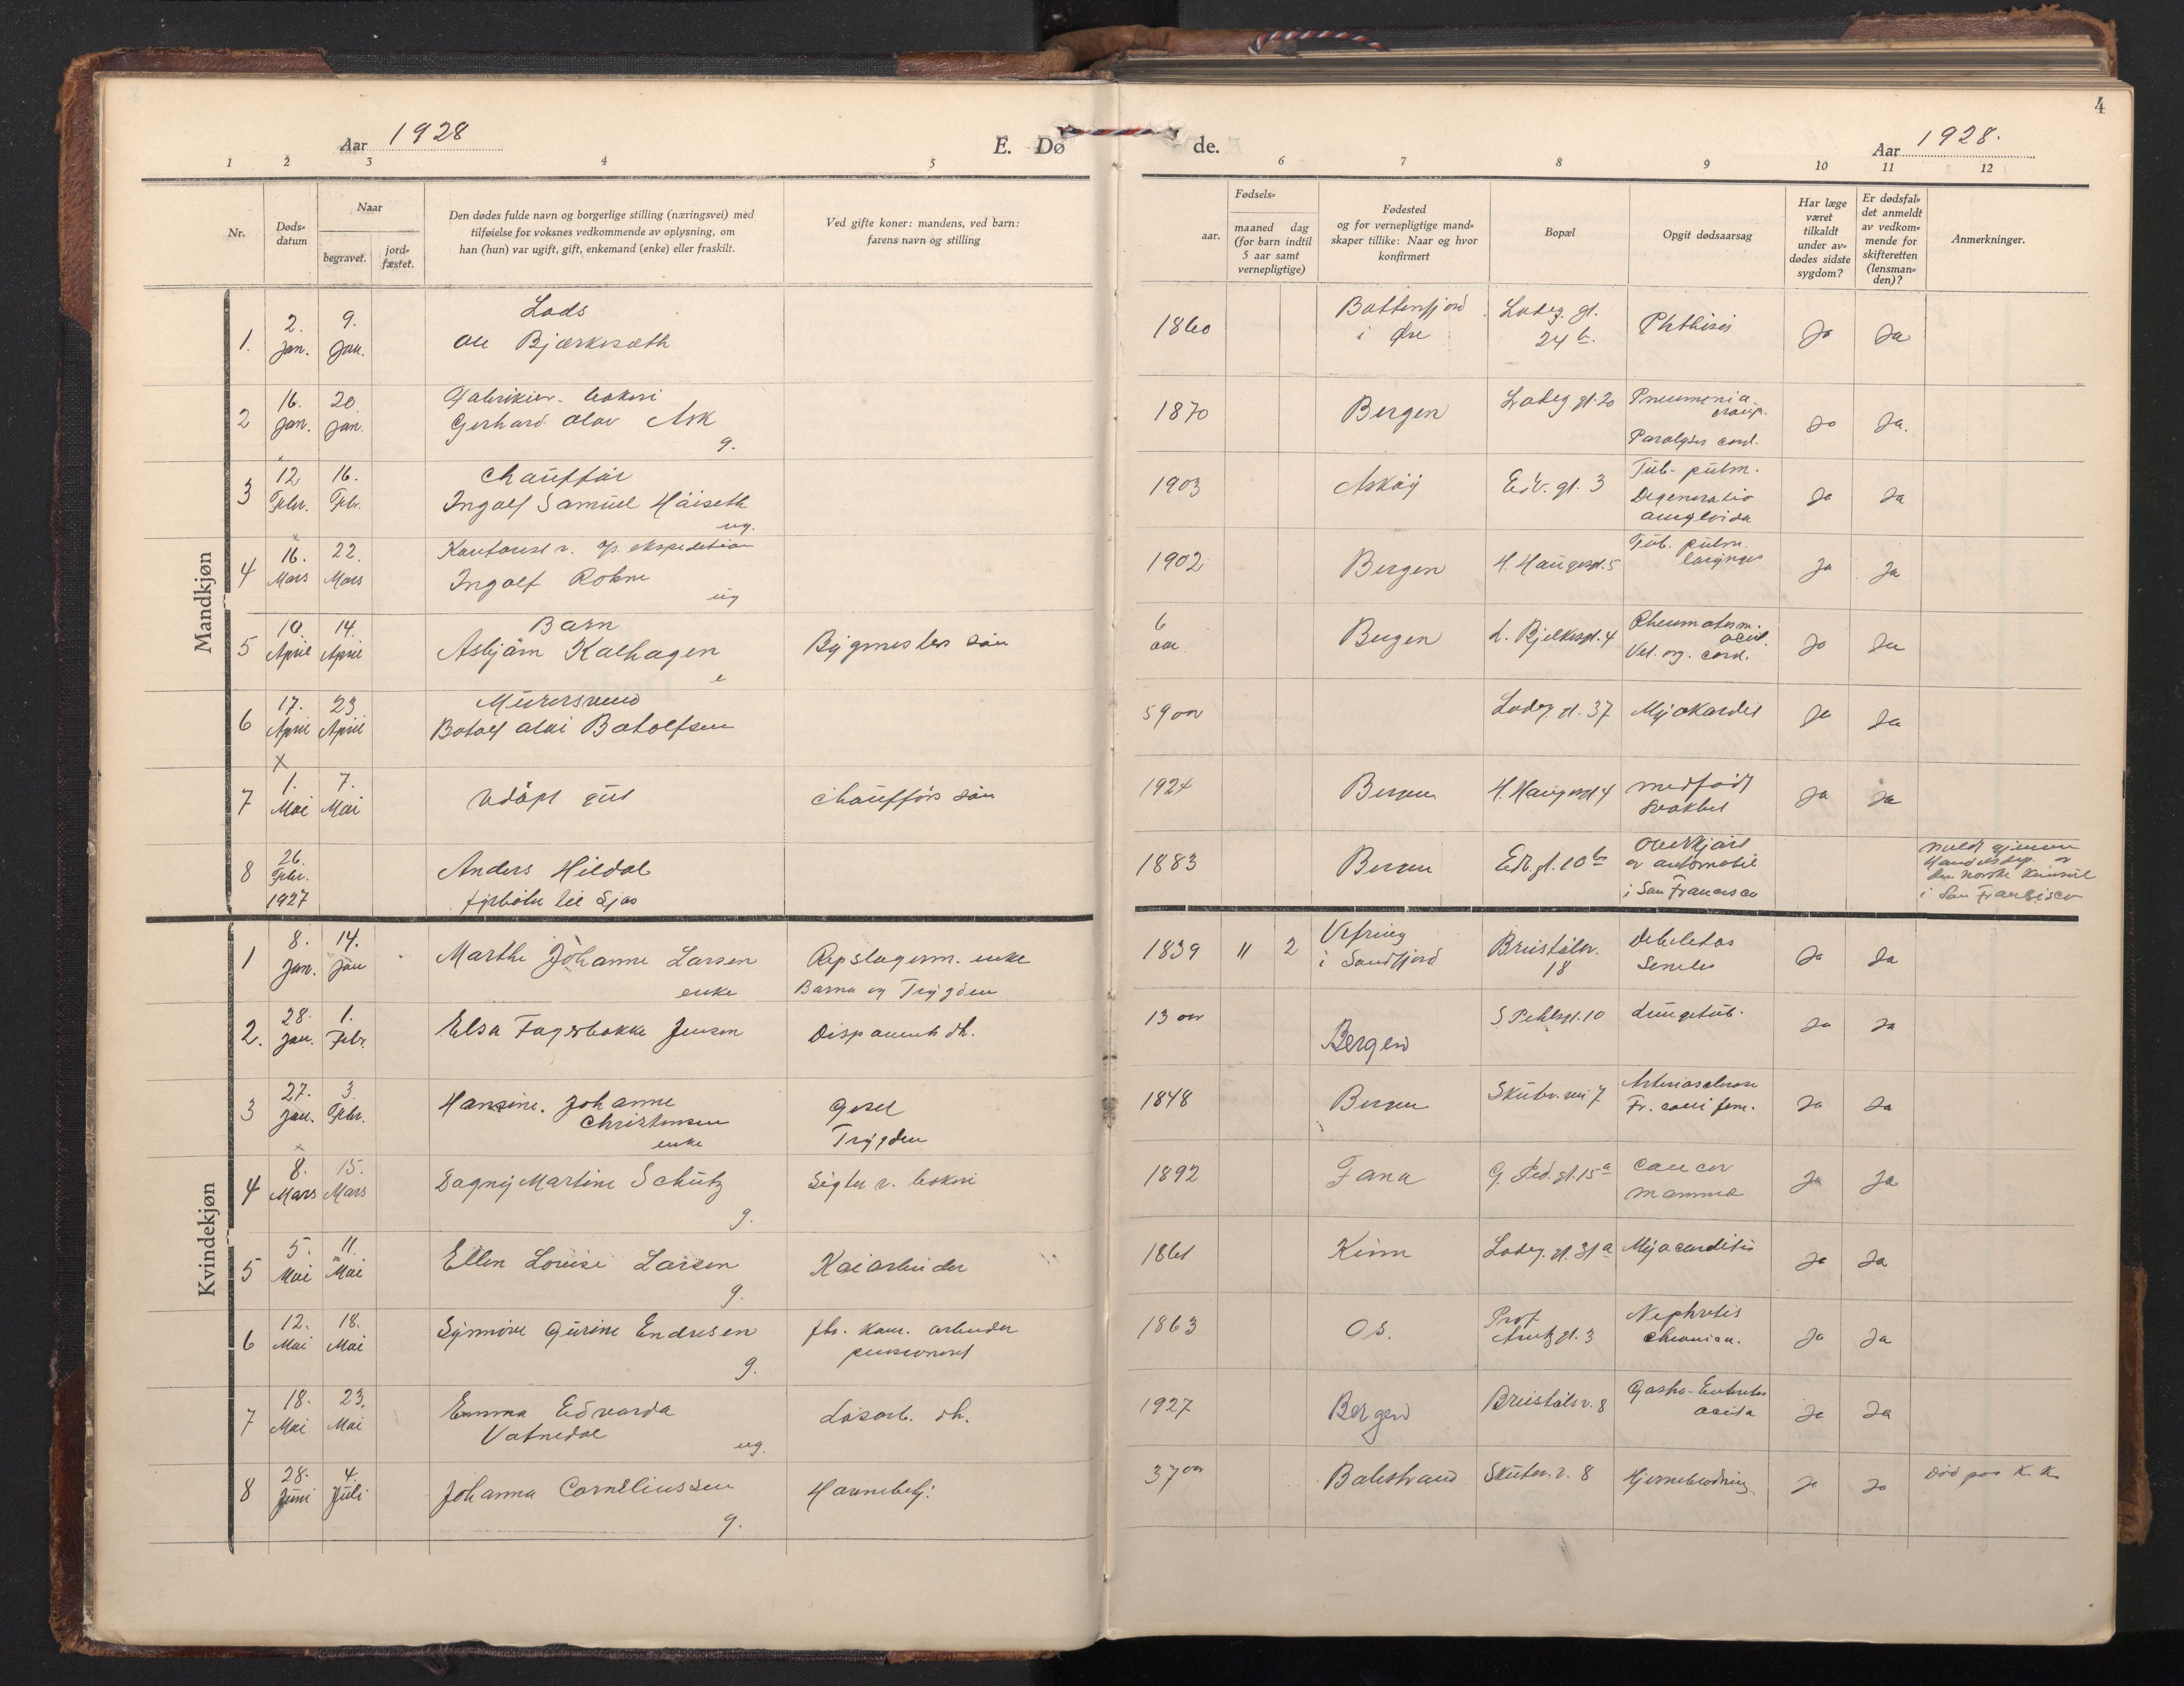 4
Aar 1928
E. Dø
de.
Aar 1928.
1 2 3 4 5 6 7 8 9 10 11 12
Nr.
Døds-
datum
Naar
begravet.
jord-
fæstet.
Den dødes fulde navn og borgerlige stilling (næringsvei) med
tilføielse for voksnes vedkommende av oplysning, om
han (hun) var ugift, gift, enkemand (enke) eller fraskilt.
Ved gifte koner: mandens, ved barn:
farens navn og stilling
Fødsels-
aar.
maaned dag
(for barn indtil
5 aar samt
vernepligtige)
Fødested
og for vernepligtige mand-
skaper tillike: Naar og hvor
konfirmert
Bopæl
Opgit dødsaarsag
Har læge
været
tilkaldt
under av-
dødes sidste
sygdom?
Er dødsfal-
det anmeldt
av vedkom-
mende for
skifteretten
(lensman-
den)?
Anmerkninger.
Mandkjøn
1. 2. Jan. 9. Jan.
Lods
Ole Bjørkesæth
1860
Battenfjord
i Øre
Ladeg. gt.
24 b.
Phthisis
Ja Ja
2 16. Jan. 20. Jan.
bakeri
Gerhard Olav Ask
g.
1870
Bergen
Ladeg gt. 20
Pneumonia
croup.
Paralysis cord.
Ja Ja.
3 12 Febr. 16. Febr.
Chauffør
Ingolf Samuel Høiseth
ug.
1903
Askøy
Edv. gt. 3
Tub. pulm.
Degeneratio
amyloida
Ja Ja
4 16. Mars 22. Mars
ekspedition
Ingolf
ug
1902
Bergen
H. Haugesgt. 5
Tub. pulm.
laryngis
Ja Ja
5 10. April 14. April
Barn
Asbjørn Kalhagen
Bygmesters søn
6
aar
Bergen
L. Bjelkesgt. 4
Rheumatism.
acut.
Vit. org. cord.
Ja Ja
6 17. April 23 April
Murersvend
Botolf Olai Botolfsen
59 aar
Ladeg. gt. 37
Myokardit
Ja Ja
X
7 1. Mai 7. Mai
Udøpt gut
Chaufførs søn
Bergen
H. Haugesgt 4
medfødt
svakhet
Ja Ja
8 26. Febr. 1927
Anders Hildal
fyrbøter til sjøs
1883
Bergen
Edv. gt. 10 b
Overkjørt
av automobil
i San Francisco
meldt gjennem
Handelsdep. av
den norske konsul
i San Francisco
Kvindekjøn
1 8. Jan. 14. Jan
Marthe Johanne Larsen
enke
Repslagerm. enke
Barna og Trygden
1839 11 2
Vefring
i Sundfjord
Breistølsv.
18
Debilitas
Senilis
Ja Ja
2. 28. Jan. 1. Febr.
Elsa Fagerbakke Jensen
Disponents dt.
13 aar
Bergen
S Pihlsgt. 10
Lungetub.
Ja Ja
3 27. Jan. 3. Febr.
Hansine Johanne
Christensen
enke
Trygden
1848
Bergen
Skutev. vei 7
Arteriosclerose
Fr. colli fem.
Ja Ja
4 8. Mars 15. Mars
Dagny Martine Schütz
g.
Sigter v. bakeri
1892
Fana
G. Ped. gt. 15 a
Cancer
mamma
Ja Ja
5 5. Mai 11. Mai
Ellen Lovise Larsen
g.
Kaiarbeider
1861
Kinn
Ladeg. gt. 31 a
Myocarditis
Ja Ja
6 12. Mai 18. Mai
Synnøve Gurine Endresen
g.
fhv. kom. arbeider
pensionert
1863
Os.
Prof
Arntz gt. 3
Nephritis
chronica.
Ja Ja
7 18. Mai 23. Mai
Emma Edvarda
Vatnedal
ug.
Løsarb. dt.
1927
Bergen
Breistølsv. 8
Gastro-Enteritis
acuta
Ja Ja
8 28. Juni 4. Juli
Johanna Corneliussen
g.
Havnebetj.
37 aar
Balestrand
Skutev. v. 8
Hjerneblødning.
Ja Ja
Død paa K. K.